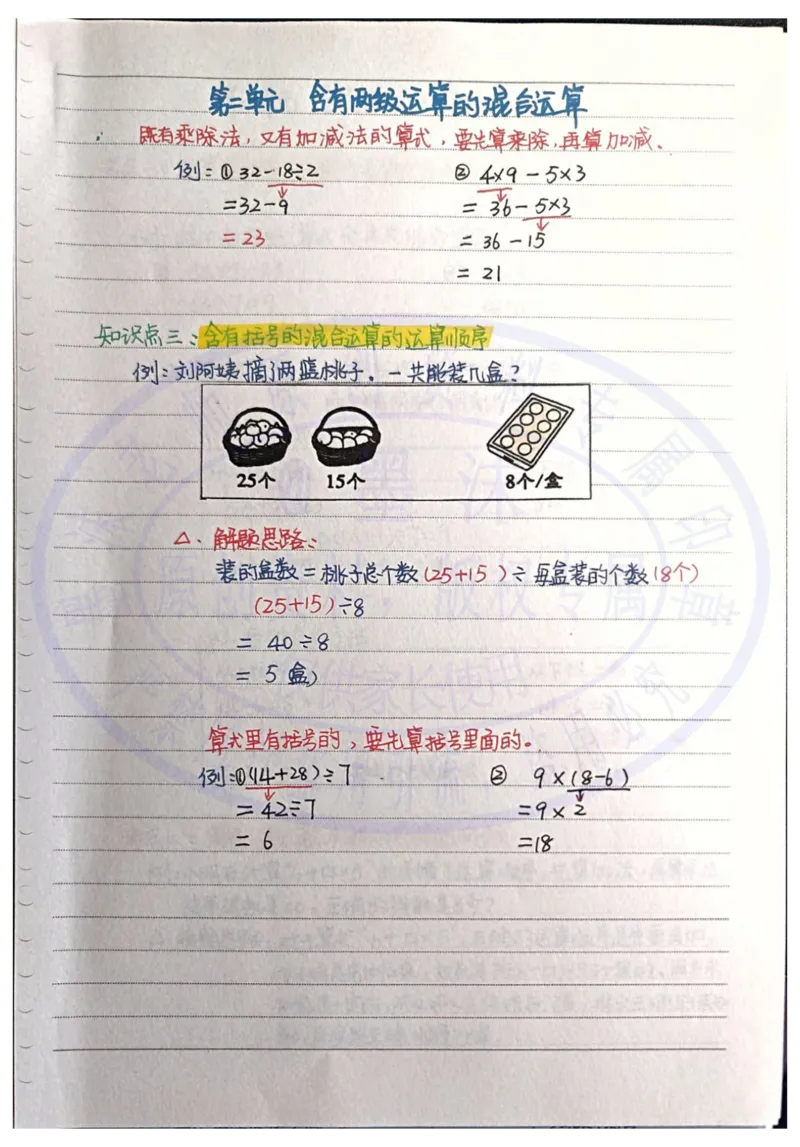 第二单元 含有两级运算的混合运算
∴ 既有乘除法，又有加减法的算式，要先算乘除，再算加减。
例：① 32-18÷2 ② 4×9-5×3
=32-9 = 36-5×3
=23 = 36-15
= 21
知识点三：含有括号的混合运算的运算顺序
例：刘阿姨摘了两篮桃子。一共能装几盒？
25个 15个 8个/盒
△. 解题思路：
装的盒数=桃子总个数(25+15)÷每盒装的个数(8个)
(25+15)÷8
= 40÷8
= 5 盒)
算式里有括号的，要先算括号里面的。
例：①(14+28)÷7 ② 9×(8-6)
= 42÷7 =9×2
= 6 =18